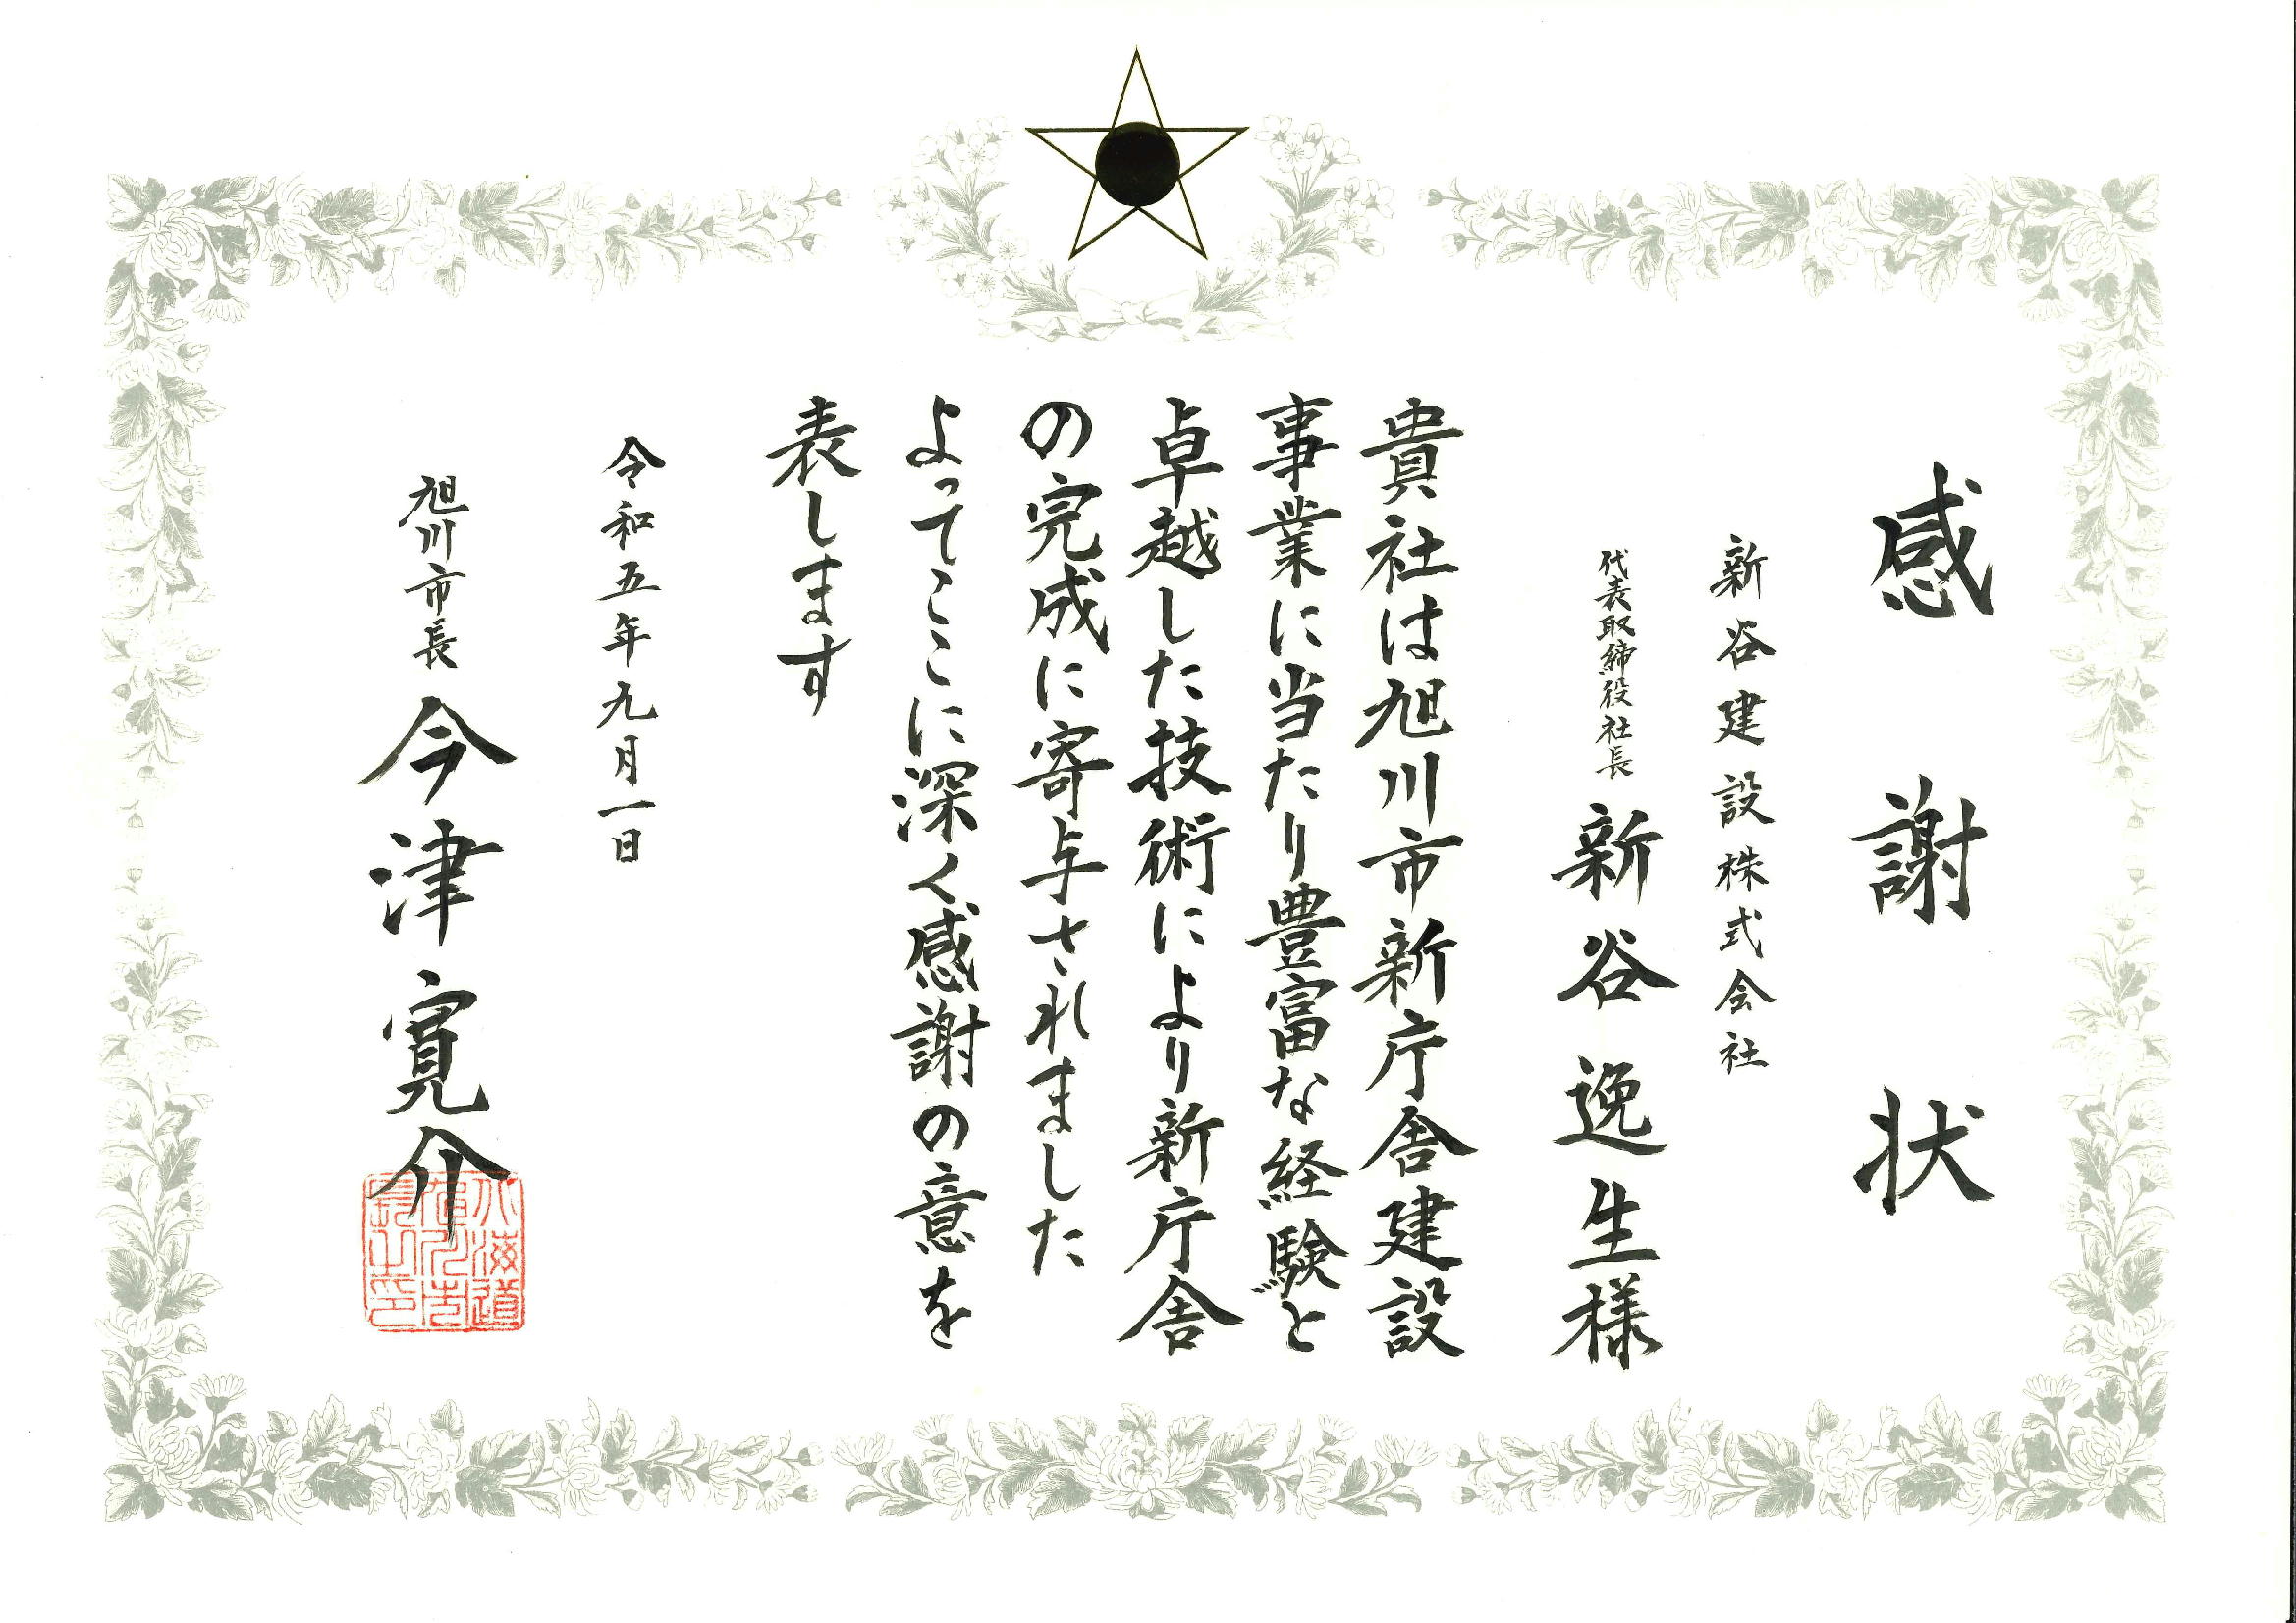 感謝状
新谷建設株式会社
代表取締役社長 新谷逸生様
貴社は旭川市新庁舎建設
事業に当たり豊富な経験と
卓越した技術により新庁舎
の完成に寄与されました
よってここに深く感謝の意を
表します
令和五年九月一日
旭川市長 今津寛介
北海道
旭川市
長之印